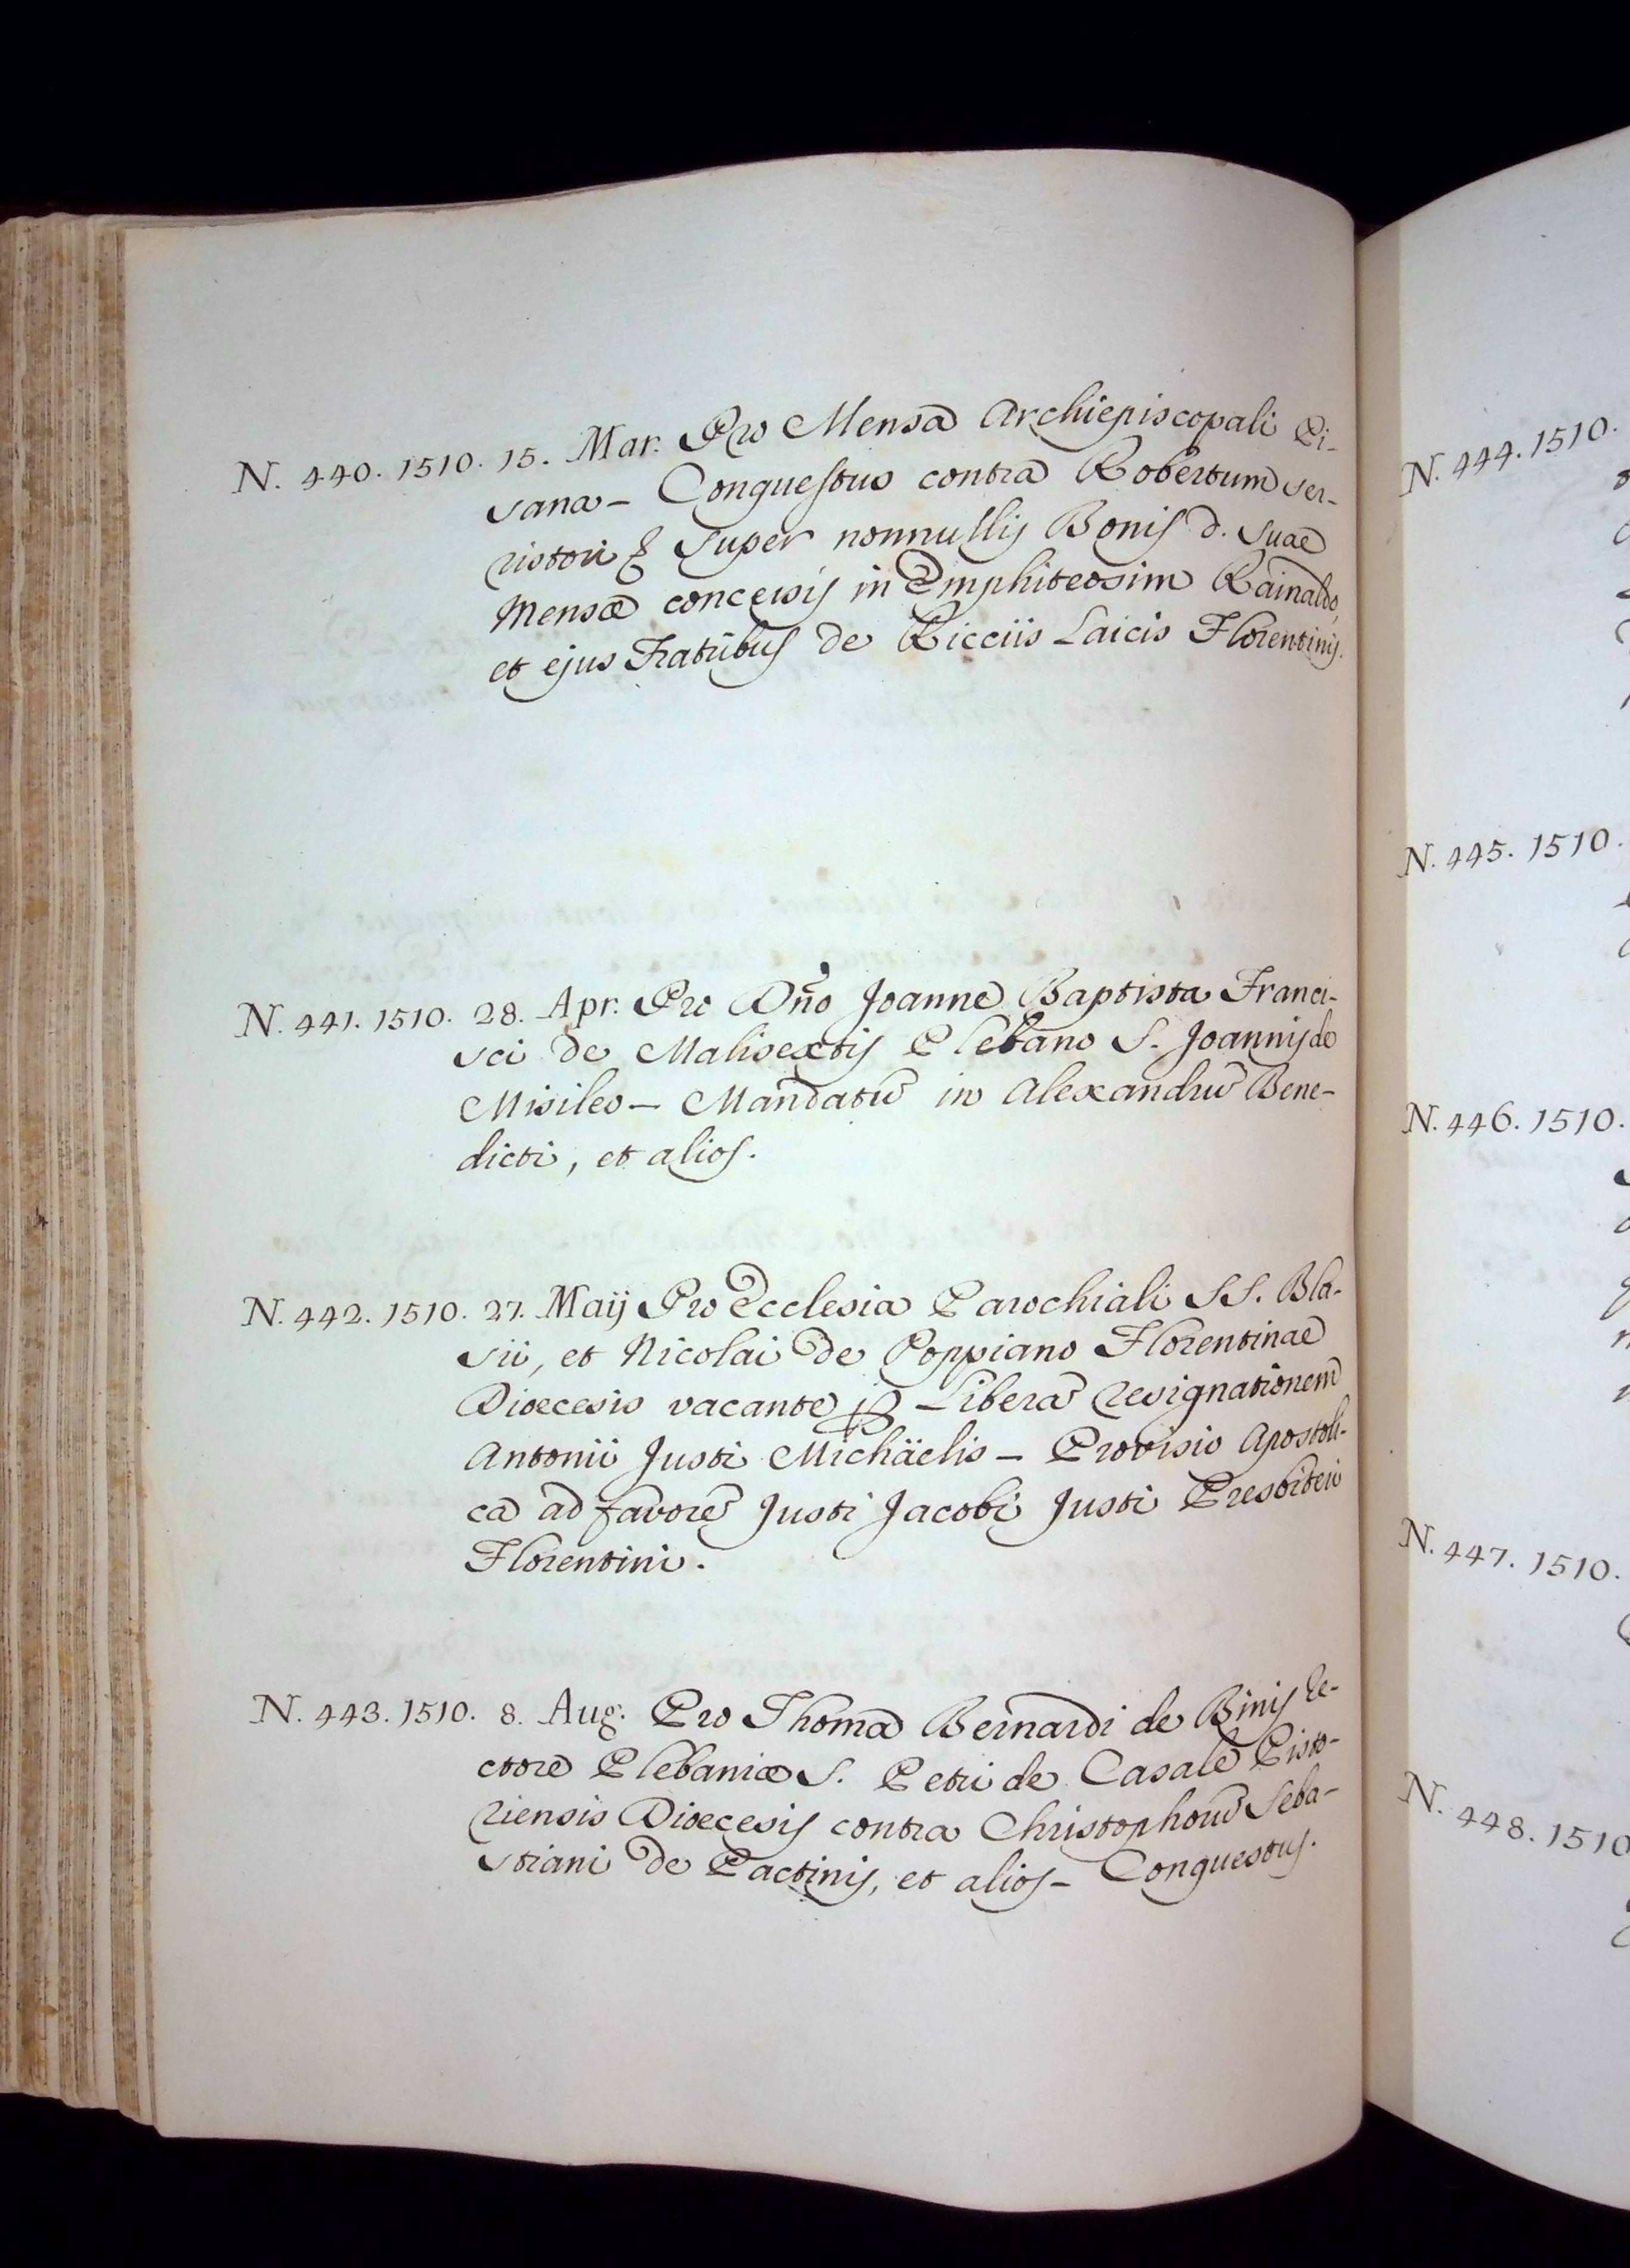 N. 440. 1510. 15. Mar. Pro Mensa Archiepiscopali Pi-
sana - Conquestus contra Robertum ser-
ristori & super nonnullis Bonis d. suae
Mensæ concessis in Emphiteosim Rainaldo,
et ejus Fratribus de Ricciis Laicis Florentinis.
N. 441. 1510. 28. Apr. Pro Dño Joanne Baptista Franci-
sci de Malisextis Plebano S. Joannis de
Misileo - Mandatũ in Alexandrũ Bene-
dicti, et alios.
N. 442. 1510. 27. Maij Pro Ecclesia Parochiali SS. Bla-
sii, et Nicolai de Poppiano Florentinae
Dioecesis vacante Liberã resignationem
Antonii Justi Michäelis - Provisio Apostoli-
ca ad favorẽ Justi Jacobi Justi Presbiteri
Florentini.
N. 443. 1510. 8. Aug. Pro Thoma Bernardi de Binis Re-
ctore Plebaniæ S. Petri de Casale Pisto-
riensis Dioecesis contra Christophorũ Seba-
stiani de Pactinis, et alios - Conquestus.
N. 444. 1510.
N. 445. 1510.
N. 446. 1510.
N. 447. 1510.
N. 448. 1510